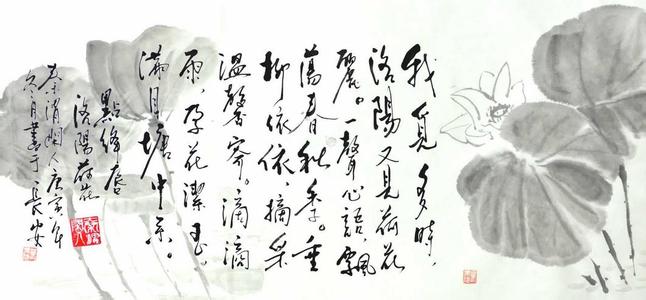 我覓多時，
洛陽又見荷花
麗。一聲心語，飄
蕩春秋季。垂
柳依依，摘采
溫馨寄。滴滴
雨，孕花潔玉，
滿月塘中系。
點絳唇
洛陽荷花
秦渭人庚寅年
冬月書于長安